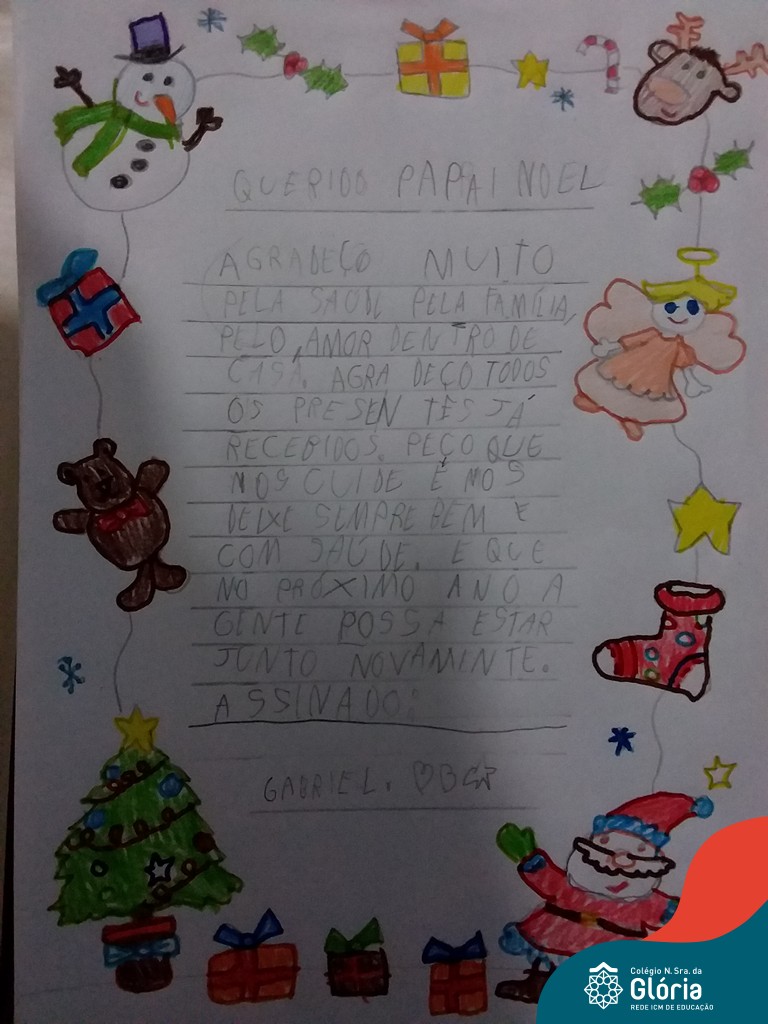 QUERIDO PAPAI NOEL
AGRADEÇO MUITO
PELA SAÚDE PELA FAMÍLIA,
PELO, AMOR DENTRO DE
CASA. AGRADEÇO TODOS
OS PRESENTÊS JÁ
RECEBIDOS. PEÇO QUE
NOS CUIDE E NOS
DEIXE SEMPRE BEM E
COM SAÚDE. E QUE
NO PRÓXIMO ANO A
GENTE POSSA ESTAR
JUNTO NOVAMINTE.
ASSINADO:
GABRIEL.
Colégio N. Sra. da
Glória
REDE ICM DE EDUCAÇÃO